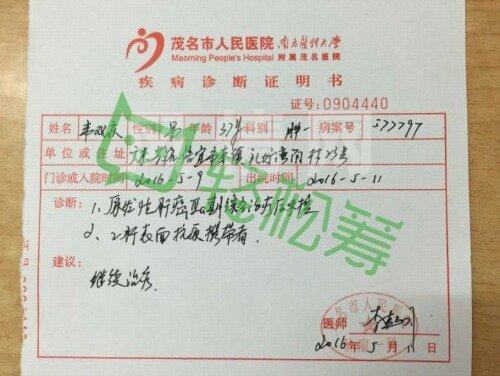 茂名市人民医院 南方医科大学
Maoming People's Hospital 附属茂名医院
疾病诊断证明书
证号:0904440
姓名 韦观庆 性别 男 年龄 37岁 科别 肿一 病案号 577797
单位或住址 广东 信宜市
门诊或入院时间 2016-5-9 出院时间 2016-5-11
诊断: 1、原发性肝癌 综合治疗后
2、乙肝表面抗原携带者.
建议:
继续治疗.
轻松筹
茂名市人民医
医师
2016年5月11日